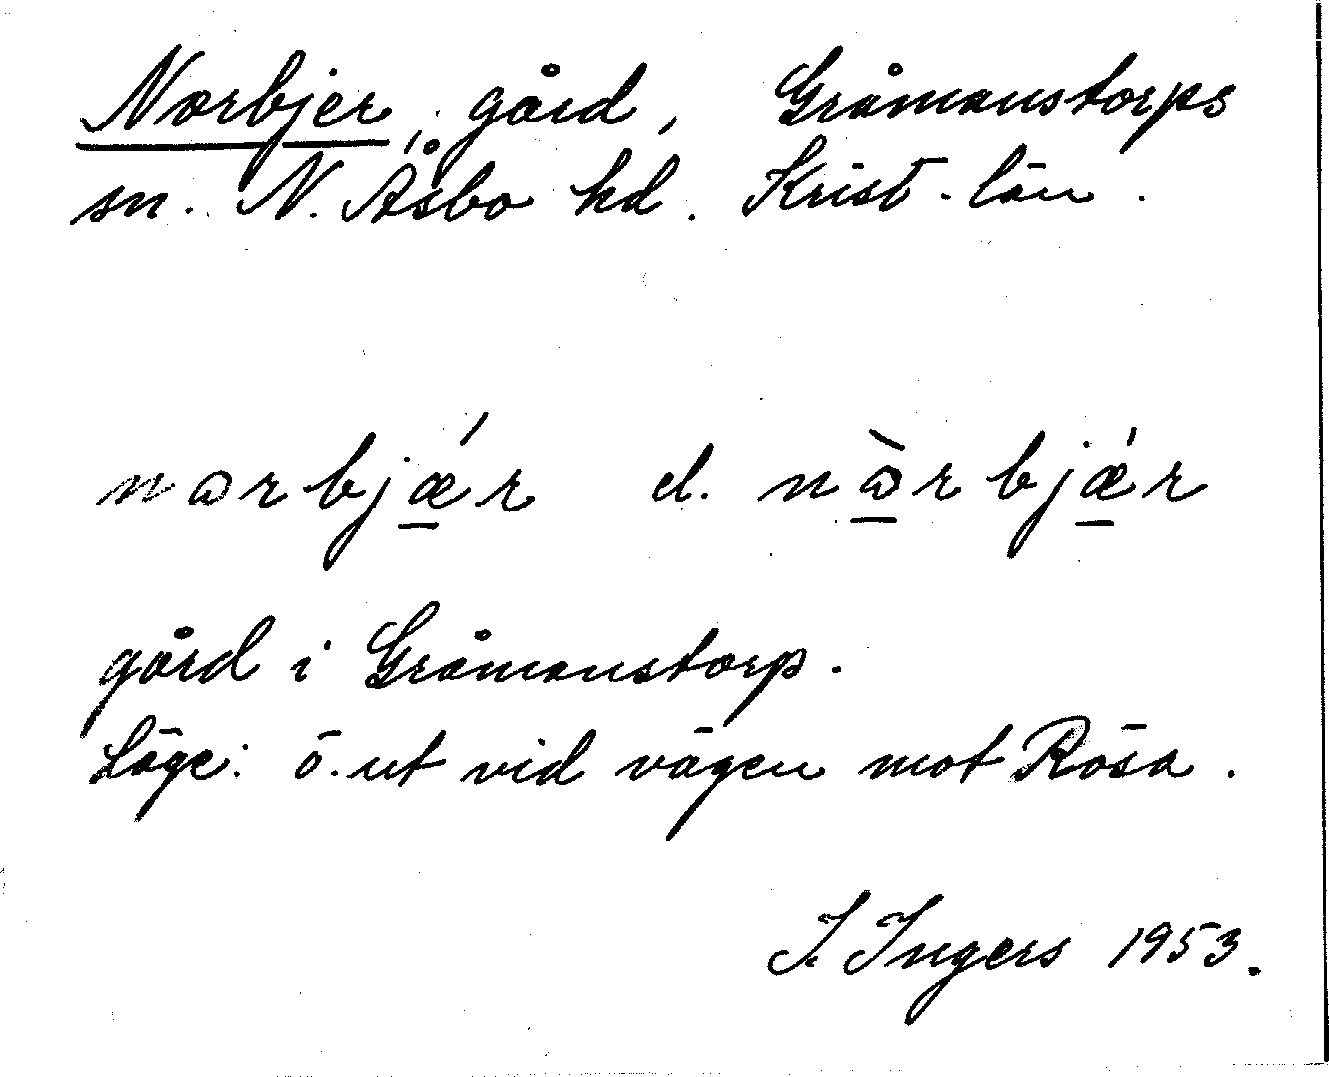 Norbjer, gård, Gråmanstorps
sn. N. Åsbo hd. Krist. län.
nɷrbjǽ̲r el. nɷ̲̀rbjǽ̲r
gård i Gråmanstorp.
Läge: ö. ut vid vägen mot Rösa.
I. Ingers 1953.